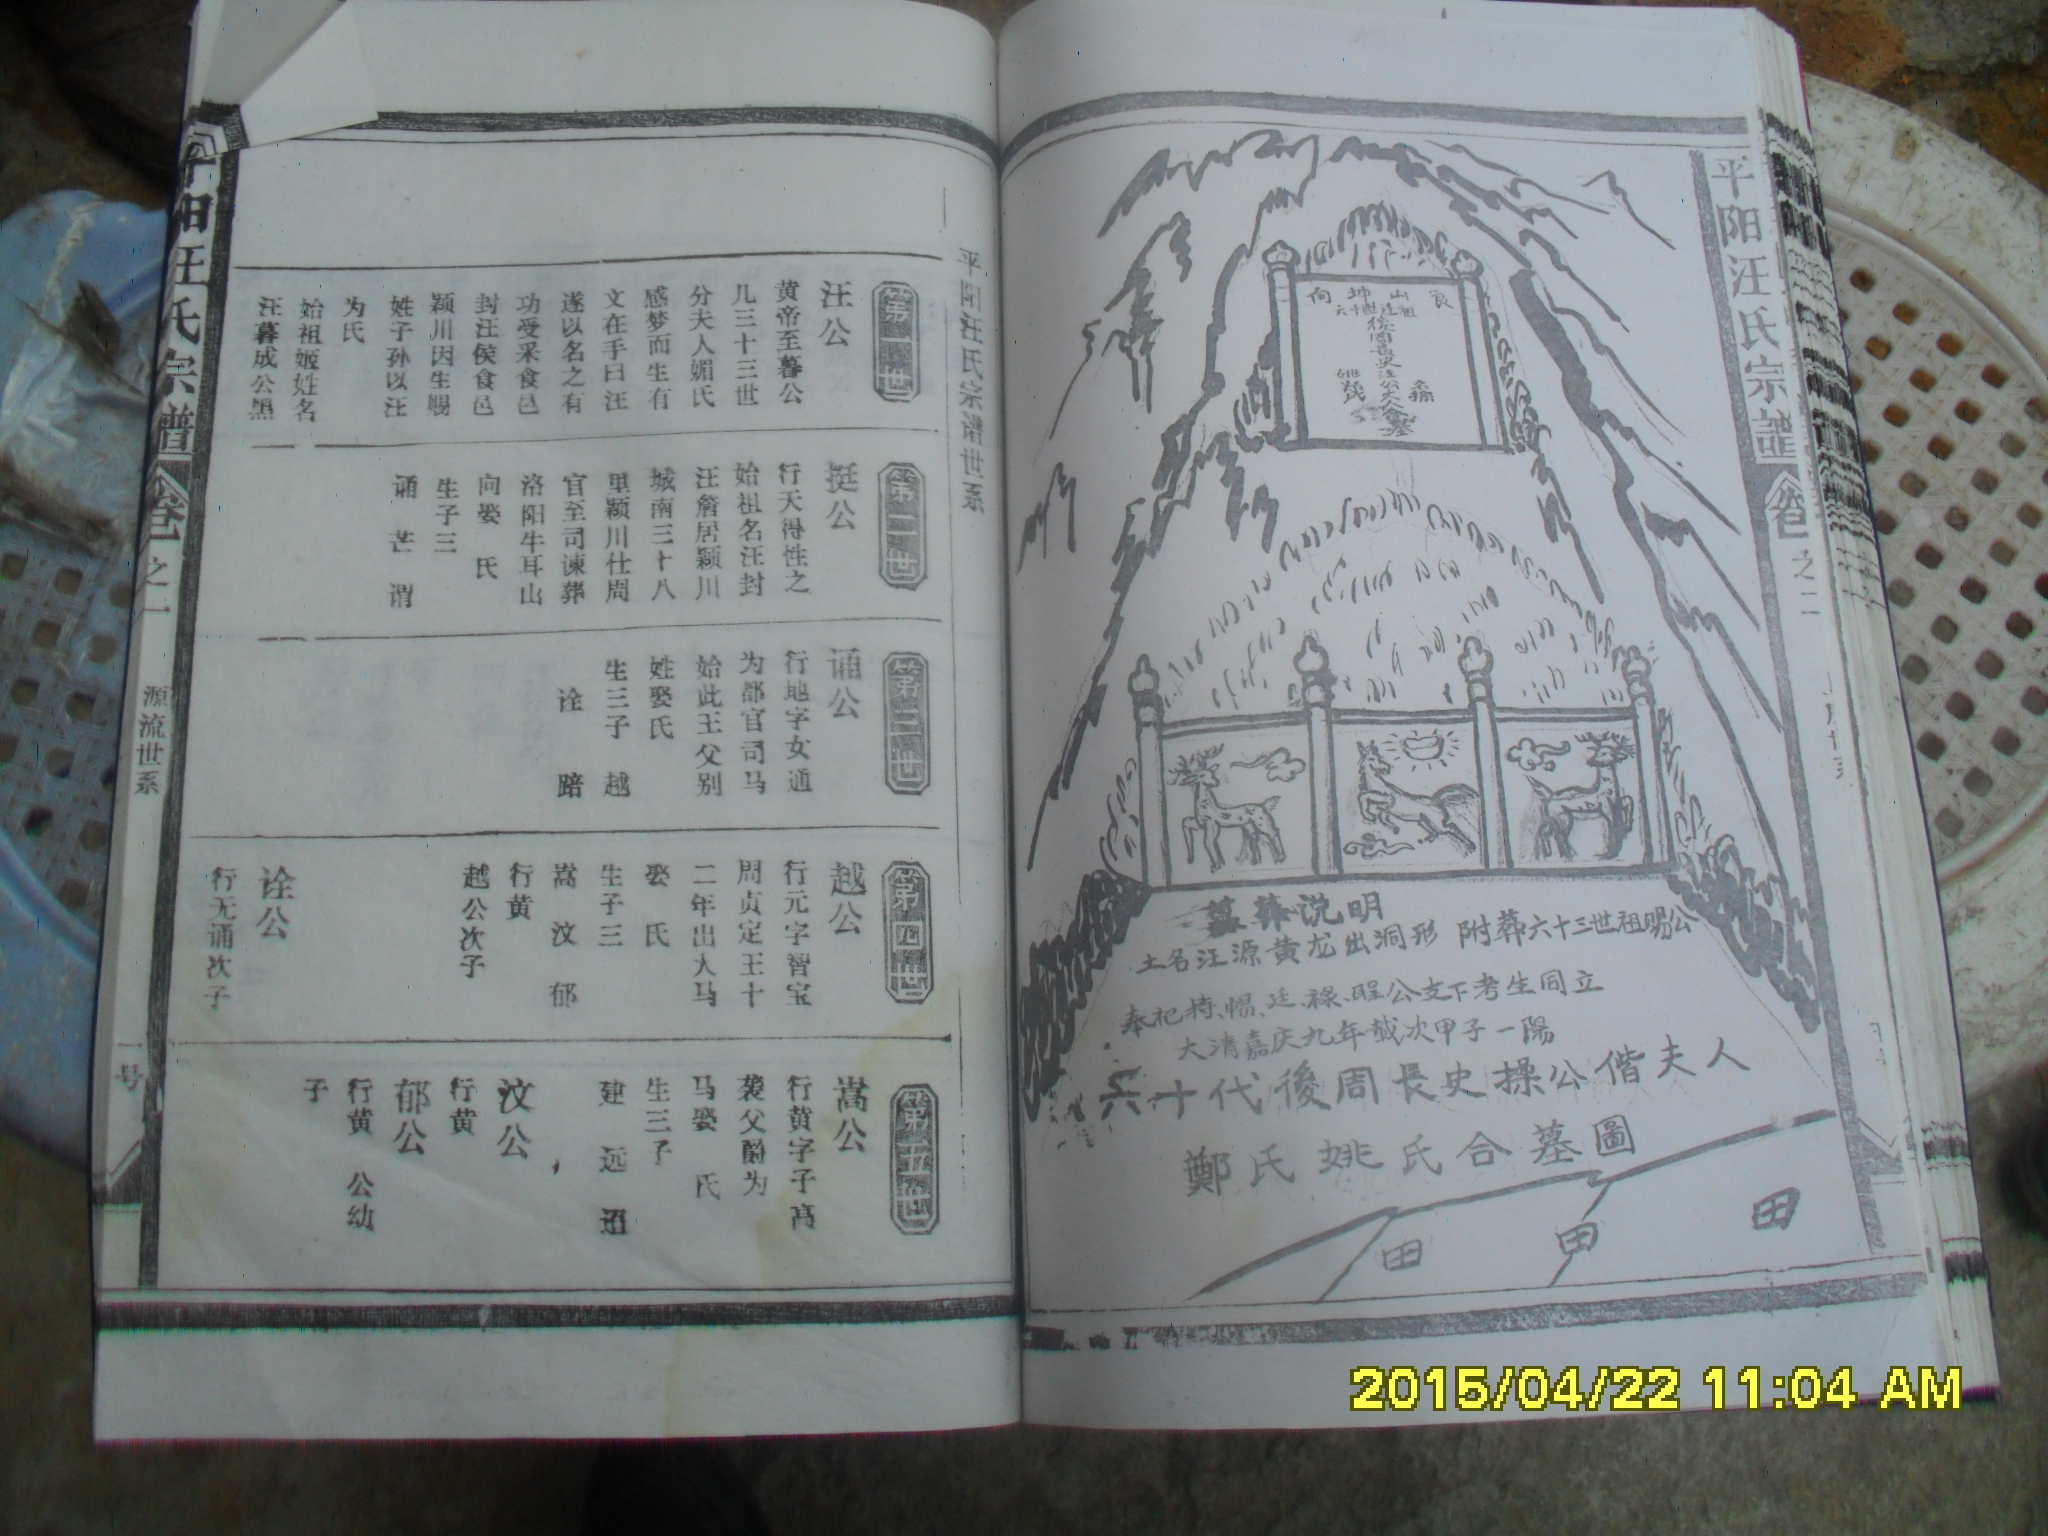 平阳汪氏宗譜
卷之二
艮山坤向
六十世廷祖
後周長史汪公夫人合墓
姚氏
墓葬说明
土名汪源黄龙出洞形 附葬六十三世祖赐公
大清嘉庆九年載次甲子一陽
六十代後周長史操公偕夫人
鄭氏姚氏合墓圖
田
田
田
平阳汪氏宗谱世系
第一世
汪公
黄帝至暮公
几三十三世
分夫人媚氏
感梦而生有
文在手曰汪
遂以名之有
功受采食邑
封汪侯食邑
颖川因生赐
姓子孙以汪
为氏
始祖姬姓名
汪暮成公黑
第二世
挺公
行天得性之
始祖名汪封
汪詹居颖川
城南三十八
里颖川仕周
官至司谏葬
洛阳牛耳山
向娶 氏
生子三
诵 芒 谓
第三世
诵公
行地字女通
为都官司马
始此王父别
姓娶氏
生三子 越
诠 踣
第四世
越公
行元字智宝
周贞定王十
二年出大马
娶 氏
生子三
嵩 汶 郁
行黄
越公次子
诠公
行无诵次子
第五世
嵩公
行黄字子高
袭父爵为
马娶 氏
生三子
建 远 迢
汶公
行黄
郁公
行黄 公幼
子
平阳汪氏宗譜
卷之一
源流世系
一号
2015/04/22 11:04 AM